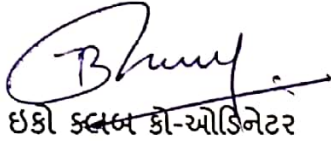 ઇકો ક્લબ કો-ઓર્ડિનેટર